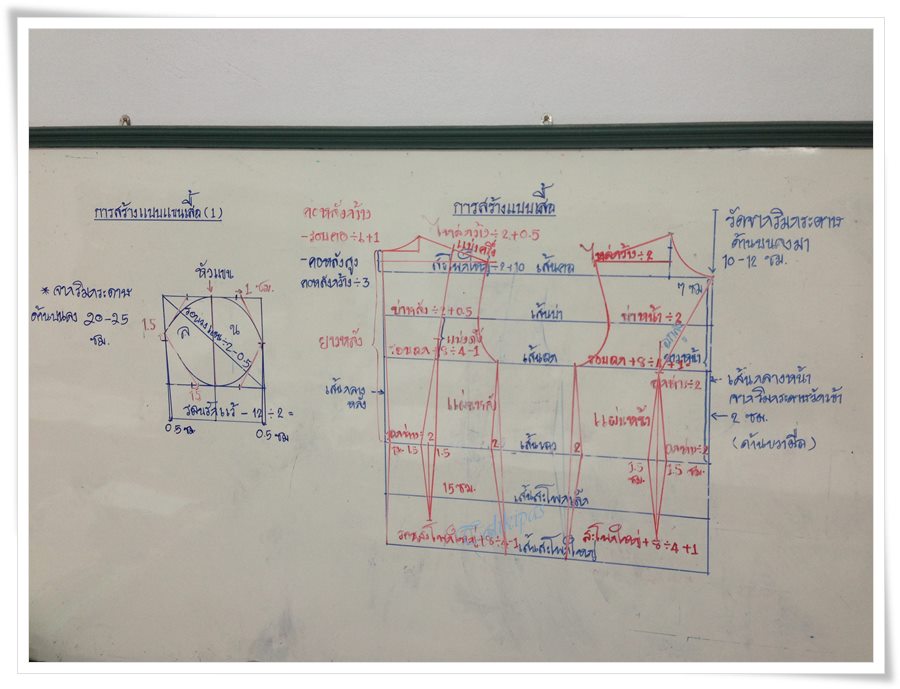 การสร้างแบบแขนเสื้อ (1)
หัวแขน
1 ซม.
* จากริมกระดาษ
ด้านบนลง 20-25
ซม.
1.5
ล
น
รอบวงแขน÷2-0.5
1.5
รอบรัดแร้ - 12 ÷ 2 =
0.5 ซม
0.5 ซม
การสร้างแบบเสื้อ
คอหลังกว้าง
-รอบคอ÷6+1
-คอหลังสูง
คอหลังกว้าง÷3
ไหล่กว้าง÷2+0.5
แบ่งครึ่ง
÷2+10
เส้นคอ
ไหล่กว้าง÷2
7 ซม
วัดจากริมกระดาษ
ด้านบนลงมา
10-12 ซม.
บ่าหลัง÷2+0.5
เส้นบ่า
บ่าหน้า÷2
ยาวหลัง
แบ่งครึ่ง
รอบอก+8÷4-1
เส้นอก
รอบอก+8÷4+1
อกสูง
ยาวหน้า
อกห่าง÷2
เส้นกลาง
หลัง
แผ่นหลัง
แผ่นหน้า
เส้นกลางหน้า
จากริมกระดาษวัดเข้า
2 ซม.
(ด้านขวามือ)
อกห่าง÷2
1.5
1.5
2
เส้นเอว
2
อกห่าง÷2
1.5
ซม.
1.5
ซม.
15 ซม.
เส้นสะโพกเล็ก
สะโพกใหญ่+8÷4-1
เส้นสะโพกใหญ่
สะโพกใหญ่+8÷4+1